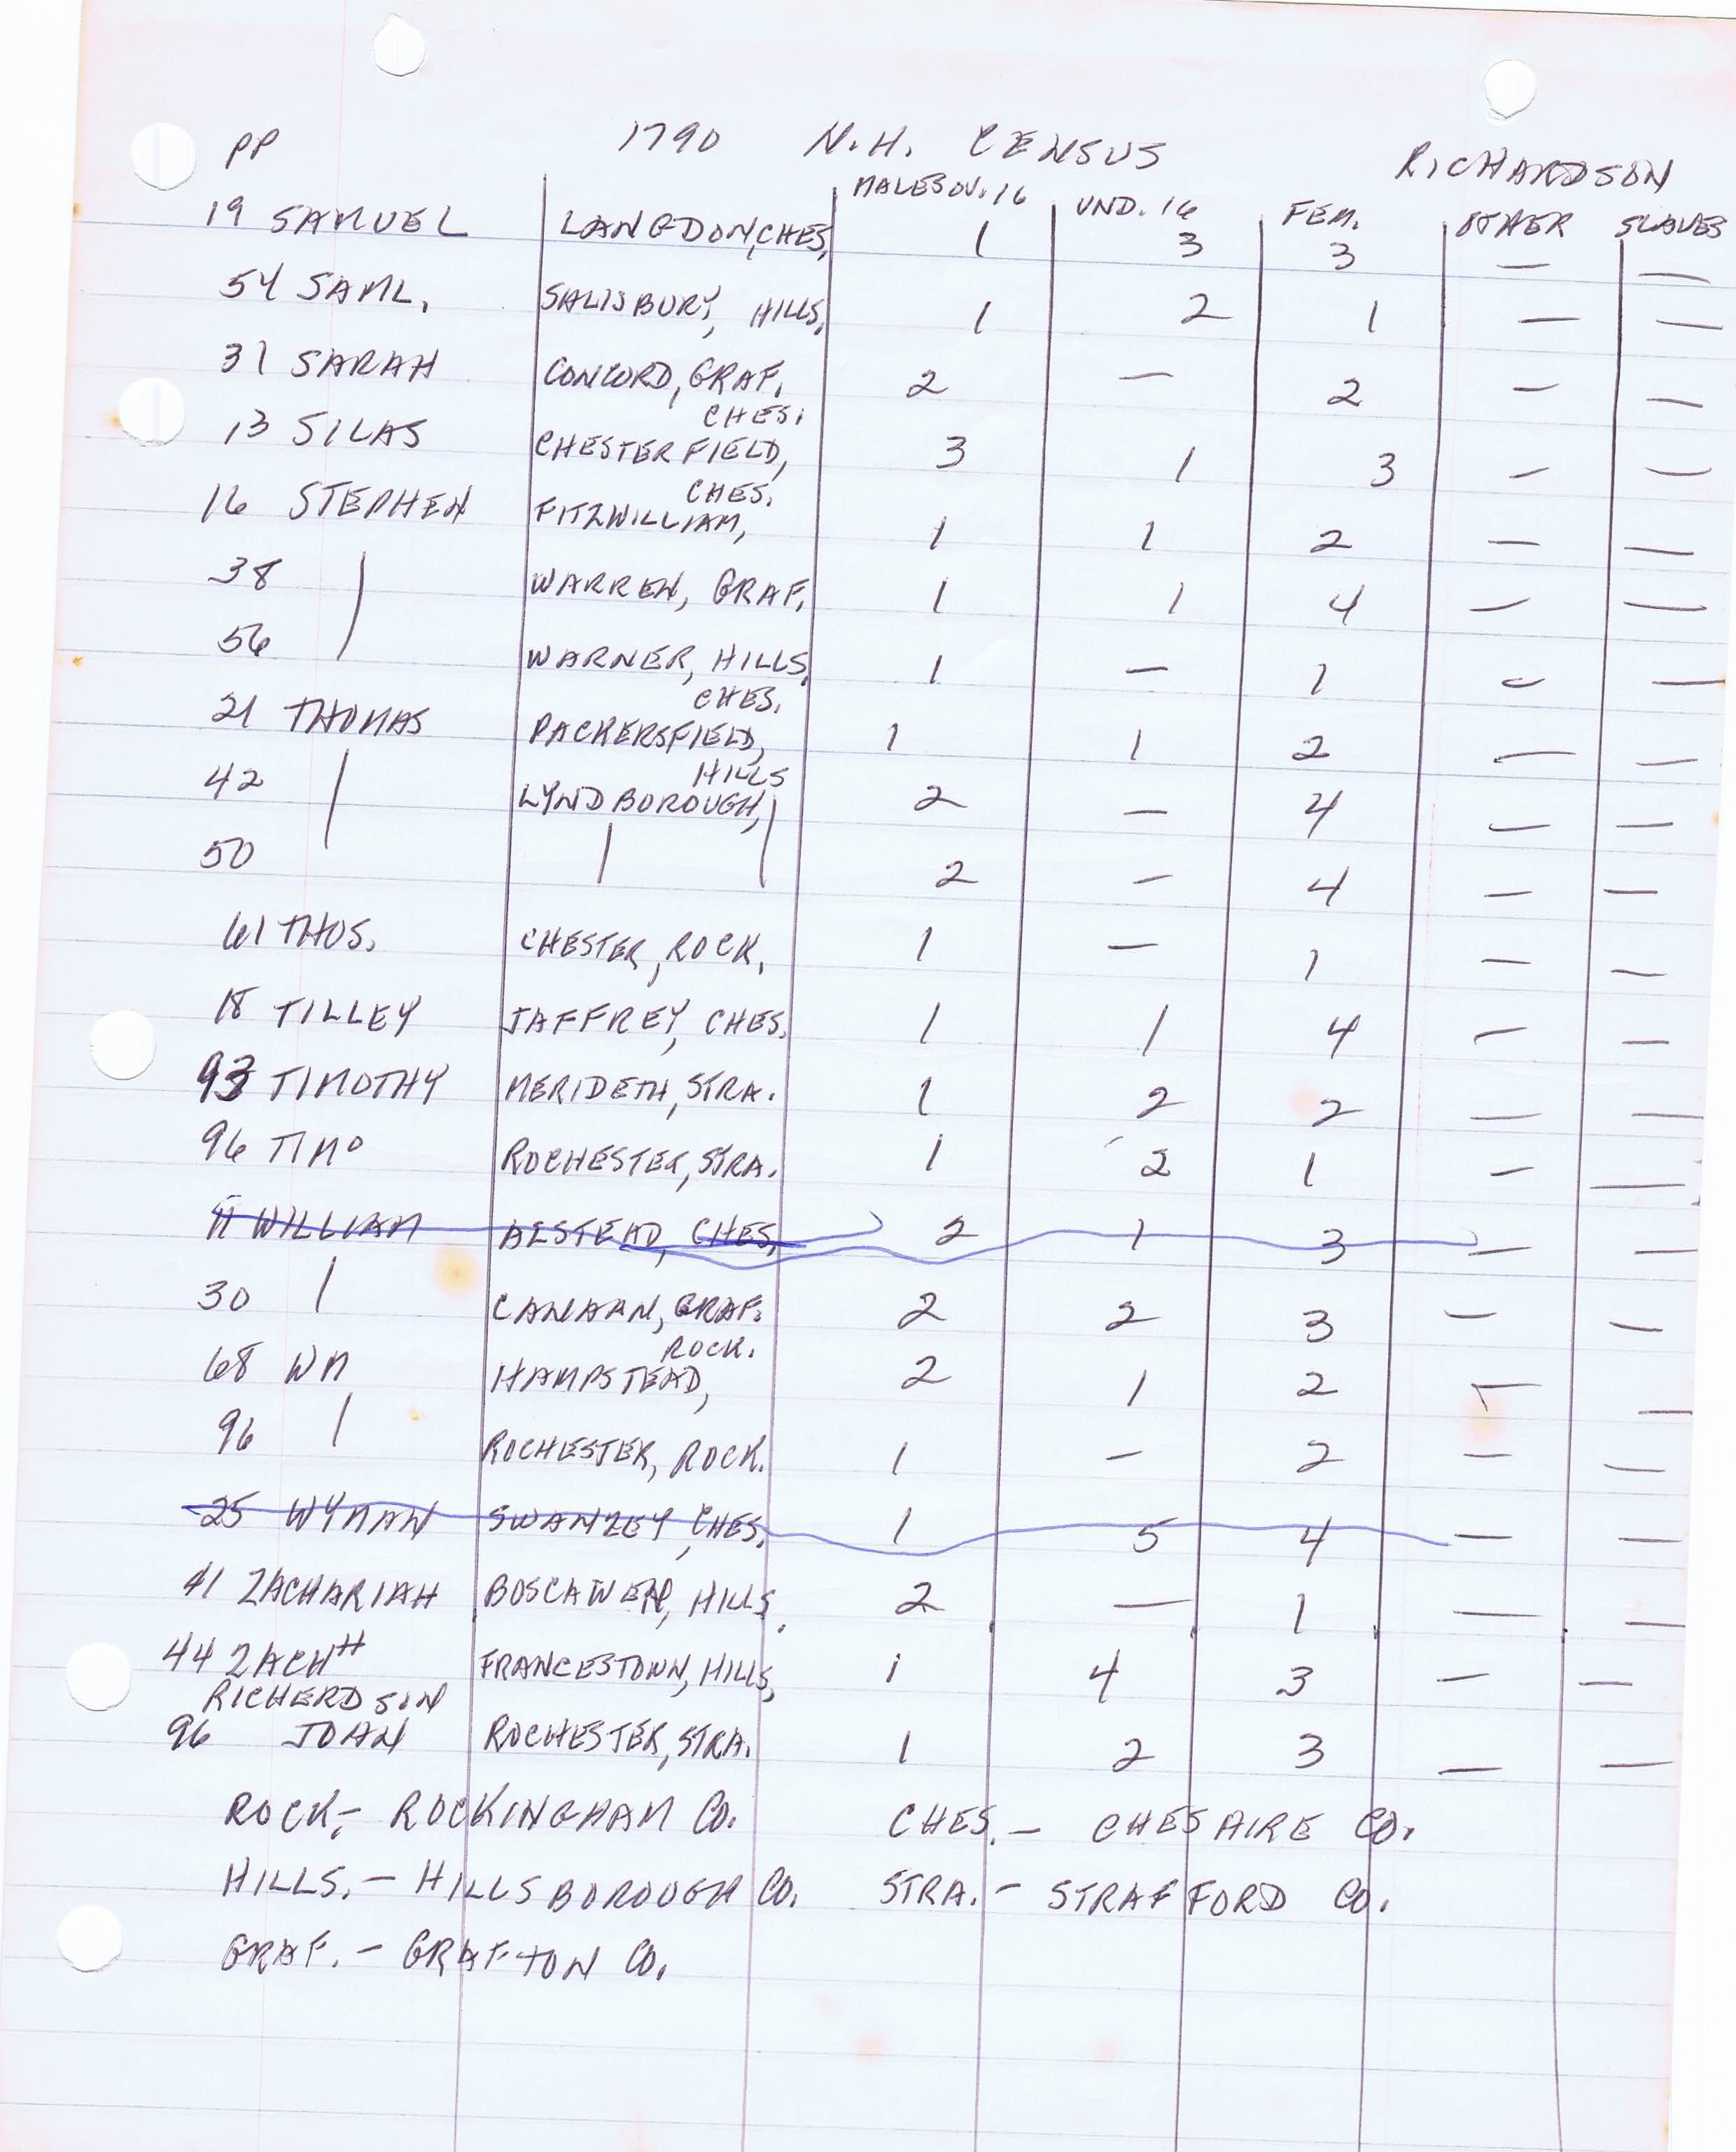 PP 1790 N.H. CENSUS RICHARDSON
MALES OV. 16 UND. 16 FEM. OTHER SLAVES
19 SAMUEL LANGDON, CHES, 1 3 3 — —
54 SAML. SALISBURY, HILLS. 1 2 1 — —
31 SARAH CONCORD, GRAF, 2 — 2 — —
CHES.
13 SILAS CHESTERFIELD, 3 1 3 — —
CHES.
16 STEPHEN FITZWILLIAM, 1 1 2 — —
38 | WARREN, GRAF, 1 1 4 — —
56 WARNER, HILLS. 1 — 1 — —
CHES.
21 THOMAS PACKERSFIELD, 1 1 2 — —
HILLS
42 | LYNDBOROUGH, 2 — 4 — —
50 | | 2 — 4 — —
61 THOS. CHESTER, ROCK. 1 — 1 — —
18 TILLEY JAFFREY, CHES. 1 1 4 — —
93 TIMOTHY MERIDETH, STRA. 1 2 2 — —
96 TIMO ROCHESTER, STRA. 1 2 1 — —
11 WILLIAM ALSTEAD, CHES, 2 1 3 — —
30 | CANAAN, GRAF. 2 2 3 — —
ROCK.
68 WM HAMPSTEAD, 2 1 2 — —
96 | ROCHESTER, ROCK. 1 — 2 — —
25 WYMAN SWANZEY, CHES. 1 5 4 — —
41 ZACHARIAH BOSCAWEN, HILLS. 2 — 1 — —
44 ZACHH FRANCESTOWN, HILLS, 1 4 3 — —
RICHERDSON
96 JOHN ROCHESTER, STRA. 1 2 3 — —
ROCK. – ROCKINGHAM CO. CHES. – CHESHIRE CO.
HILLS. – HILLSBOROUGH CO. STRA. – STRAFFORD CO.
GRAF. – GRAFTON CO.